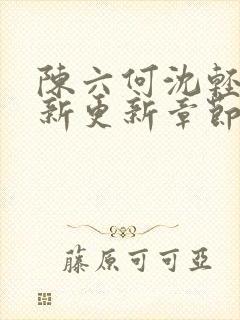 陳六何沈輕
新更新章節
藤原可可亞